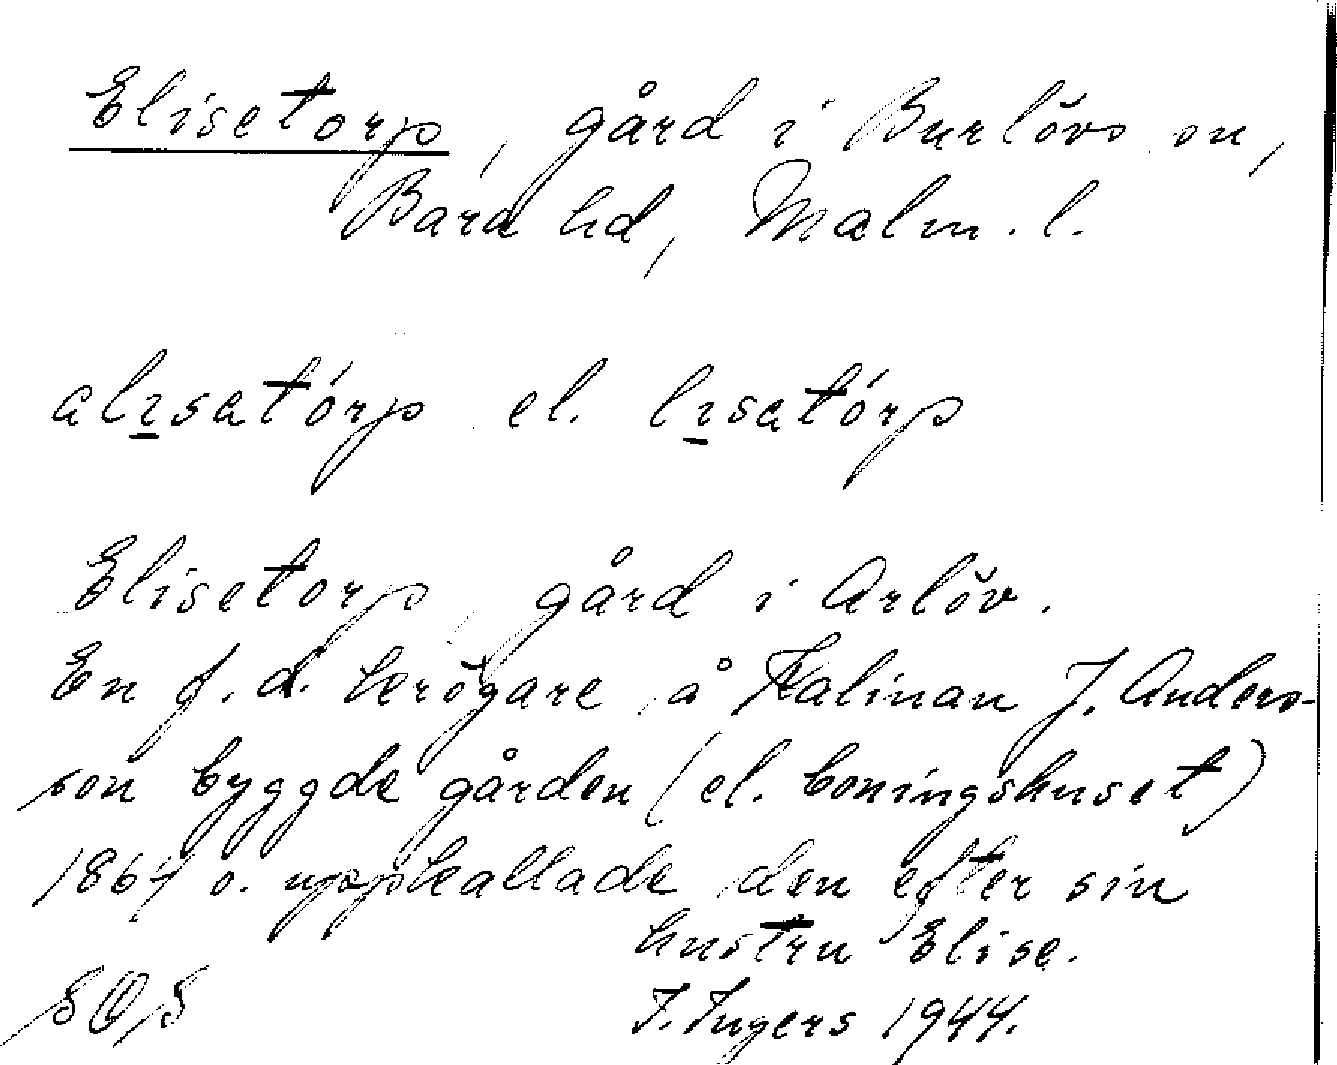 Elisetorp, gård i Burlövs sn,
Bara hd, Malm. l.
alısatórp el. lısatórp
Elisetorp, gård i Arlöv.
En f. d. krögare å Kalinan J. Anders-
son byggde gården (el. boningshuset)
1867 o. uppkallade den efter sin
hustru Elise.
I. Ingers 1944.